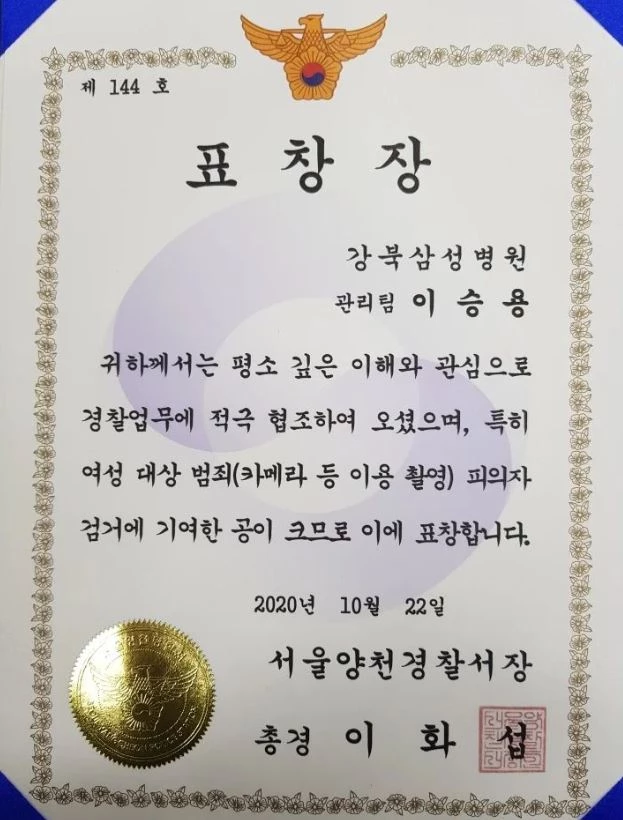 제 144 호
표 창 장
강북삼성병원
관리팀 이 승 용
귀하께서는 평소 깊은 이해와 관심으로
경찰업무에 적극 협조하여 오셨으며, 특히
여성 대상 범죄(카메라 등 이용 촬영) 피의자
검거에 기여한 공이 크므로 이에 표창합니다.
2020년 10월 22일
서울양천경찰서장
총경 이 화 섭